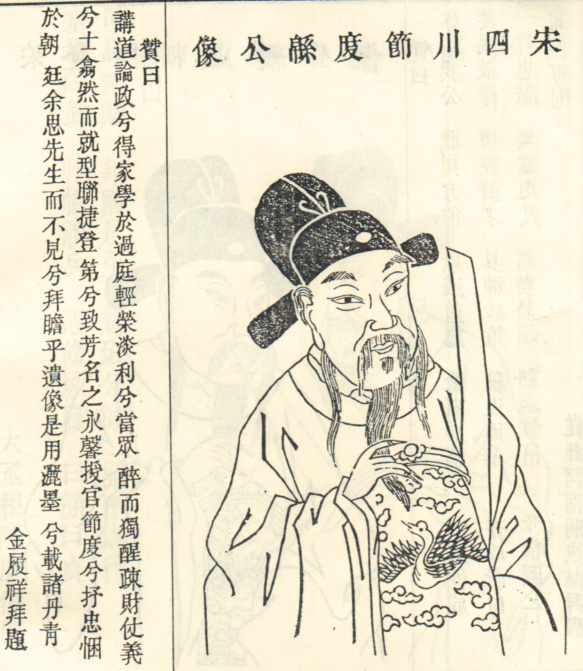 宋四川節度繇公像
贊曰
講道論政兮得家學於過庭輕榮淡利兮當眾醉而獨醒疎財仗義
兮士翕然而就型聯捷登第兮致芳名之永馨授官節度兮抒忠悃
於朝廷余思先生而不見兮拜瞻乎遺像是用灑墨兮載諸丹青
金履祥拜題